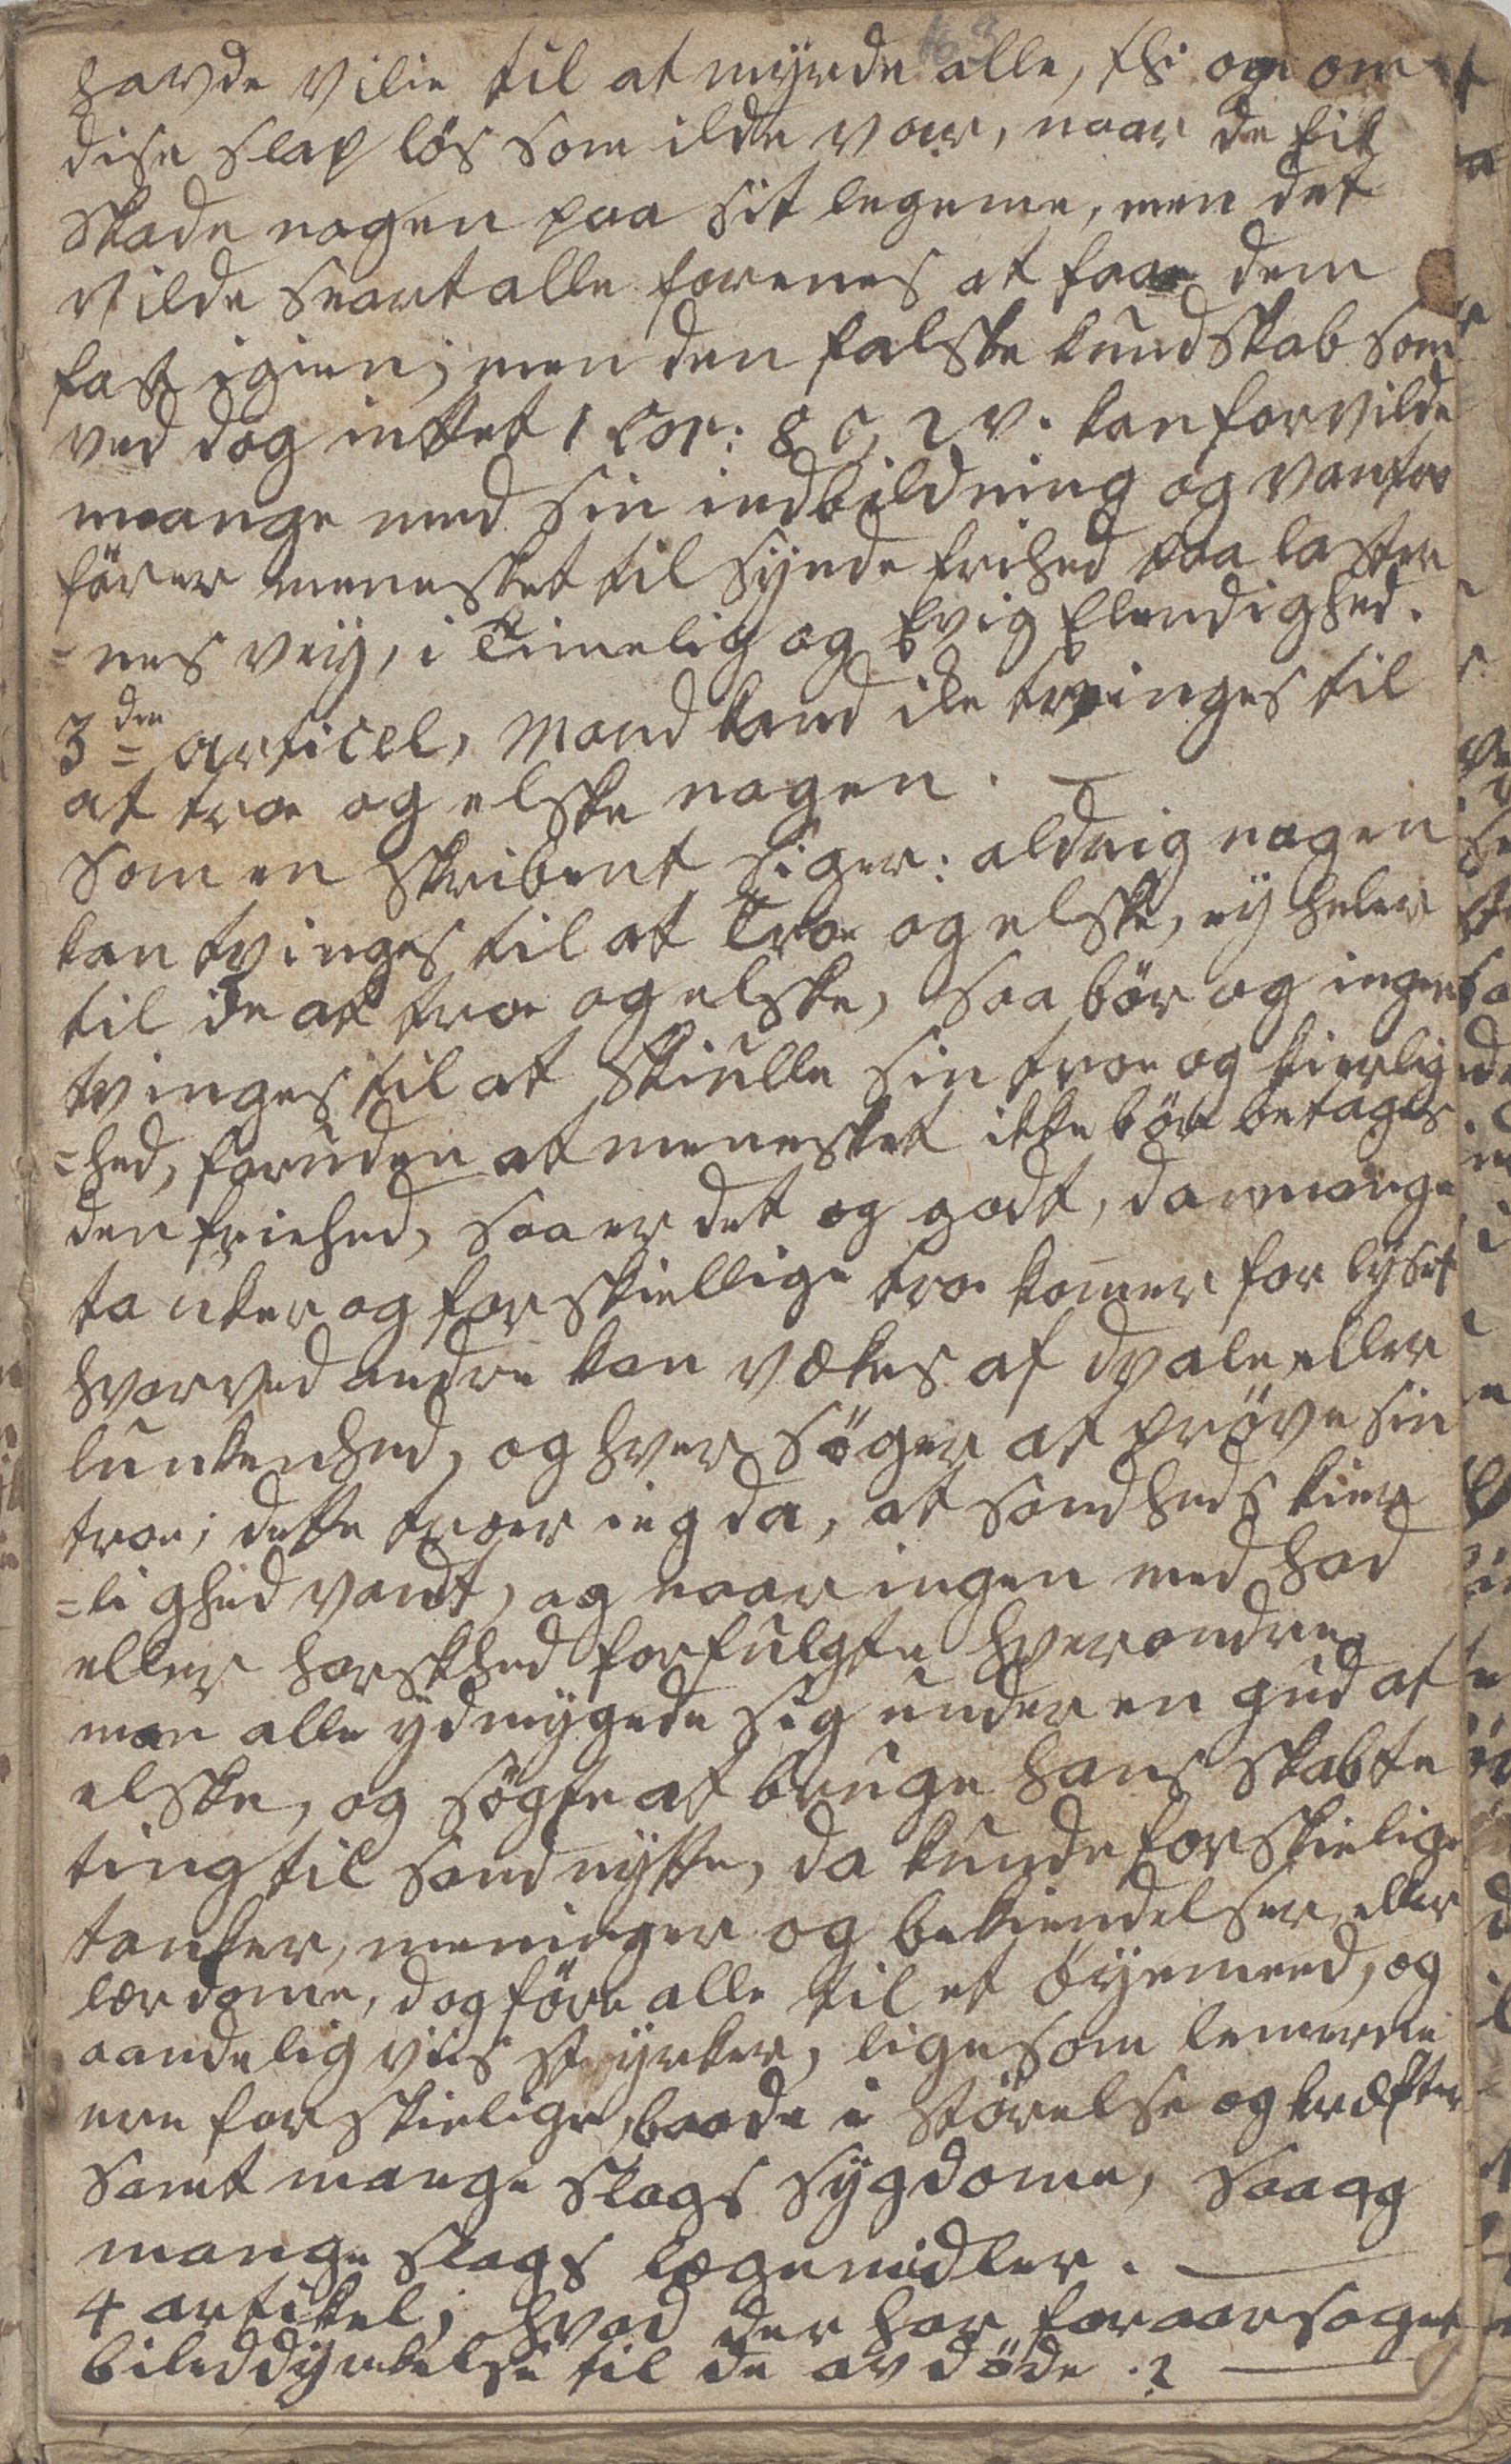 63
havde vilie til at myrde alle, thi og om
dise slap lös som ilde var, naar de fik
skade nogen paa sit legeme, men det
vilde snart alle forenes at faae dem
fast igien; men den falske kundskab som
ved dog inttet 1 Cor: 8 C, 2 v. kan forvilde
mange med sin indbildning og vantro
förer menesket til synde frihed paa laster
=nes vey, i Timelig og Evig Elendighed.
3den articel, Mand kand ike tvinges til
at troe og elske nogen. —
som en skribent siger: aldrig nogen
kan tvinges til at Troe og elske, ey heler
til ike at troe og elske, saa bör og ingen
tvinges til at skiulle sin troe og kierlig
=hed, foruden at menesket ikke bör betages
den friehed, saa er det og godt, da mange
tanker og forskiellige troe komer for lyset
hvorved andre kan vækes af dvale eller
lunkenhed, og hver söger at pröve sin
troe; dette troer ieg da, at sandheds kier
=lighed vandt, og naar ingen med had
eller harskhed forfulgte hverandre
men alle ydmygede sig under en gud at
elske, og sögte at bruge hans skabte
ting til sand nytte, da kunde forskielige
tanker, meninger og bekiendelser eller
lærdome, dog före alle til et Öyemeed, og
aandelig viis styrker, ligesom lemerne
ere forskielige, baade i störelse og kræfter
samt mange slags sygdome, saa og
mange slags lægemidler. —
4 artikel; hvad der har foraarsaget
biled dyrkelse til de avdöde. ? —